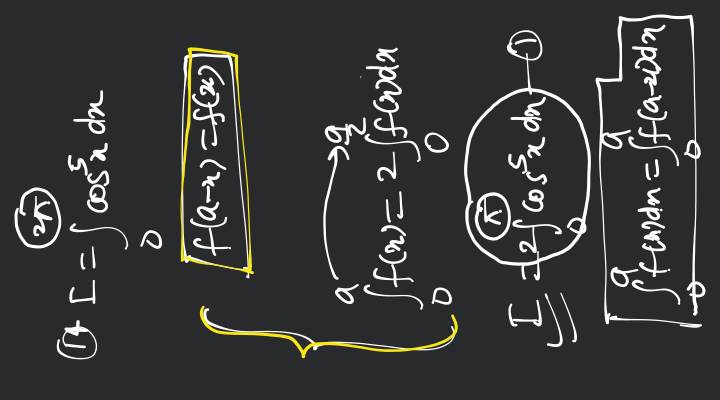 (17) I = ∫₀^2π cos⁵x dx
f(a-x) = f(x)
∫₀^a f(x) = 2 ∫₀^a/2 f(x) dx
I = 2 ∫₀^π cos⁵x dx — ①
∫₀^a f(x) dx = ∫₀^a f(a-x) dx